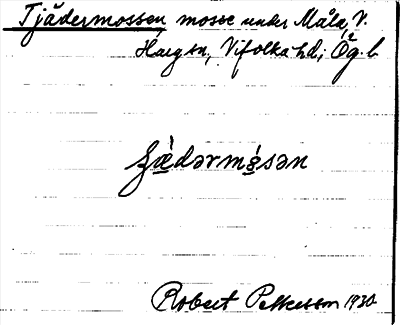 Tjädermossen mosse under Måla, V.
Harg sn, Vifolka hd; Ög. l.
Robert Pettersson 1930